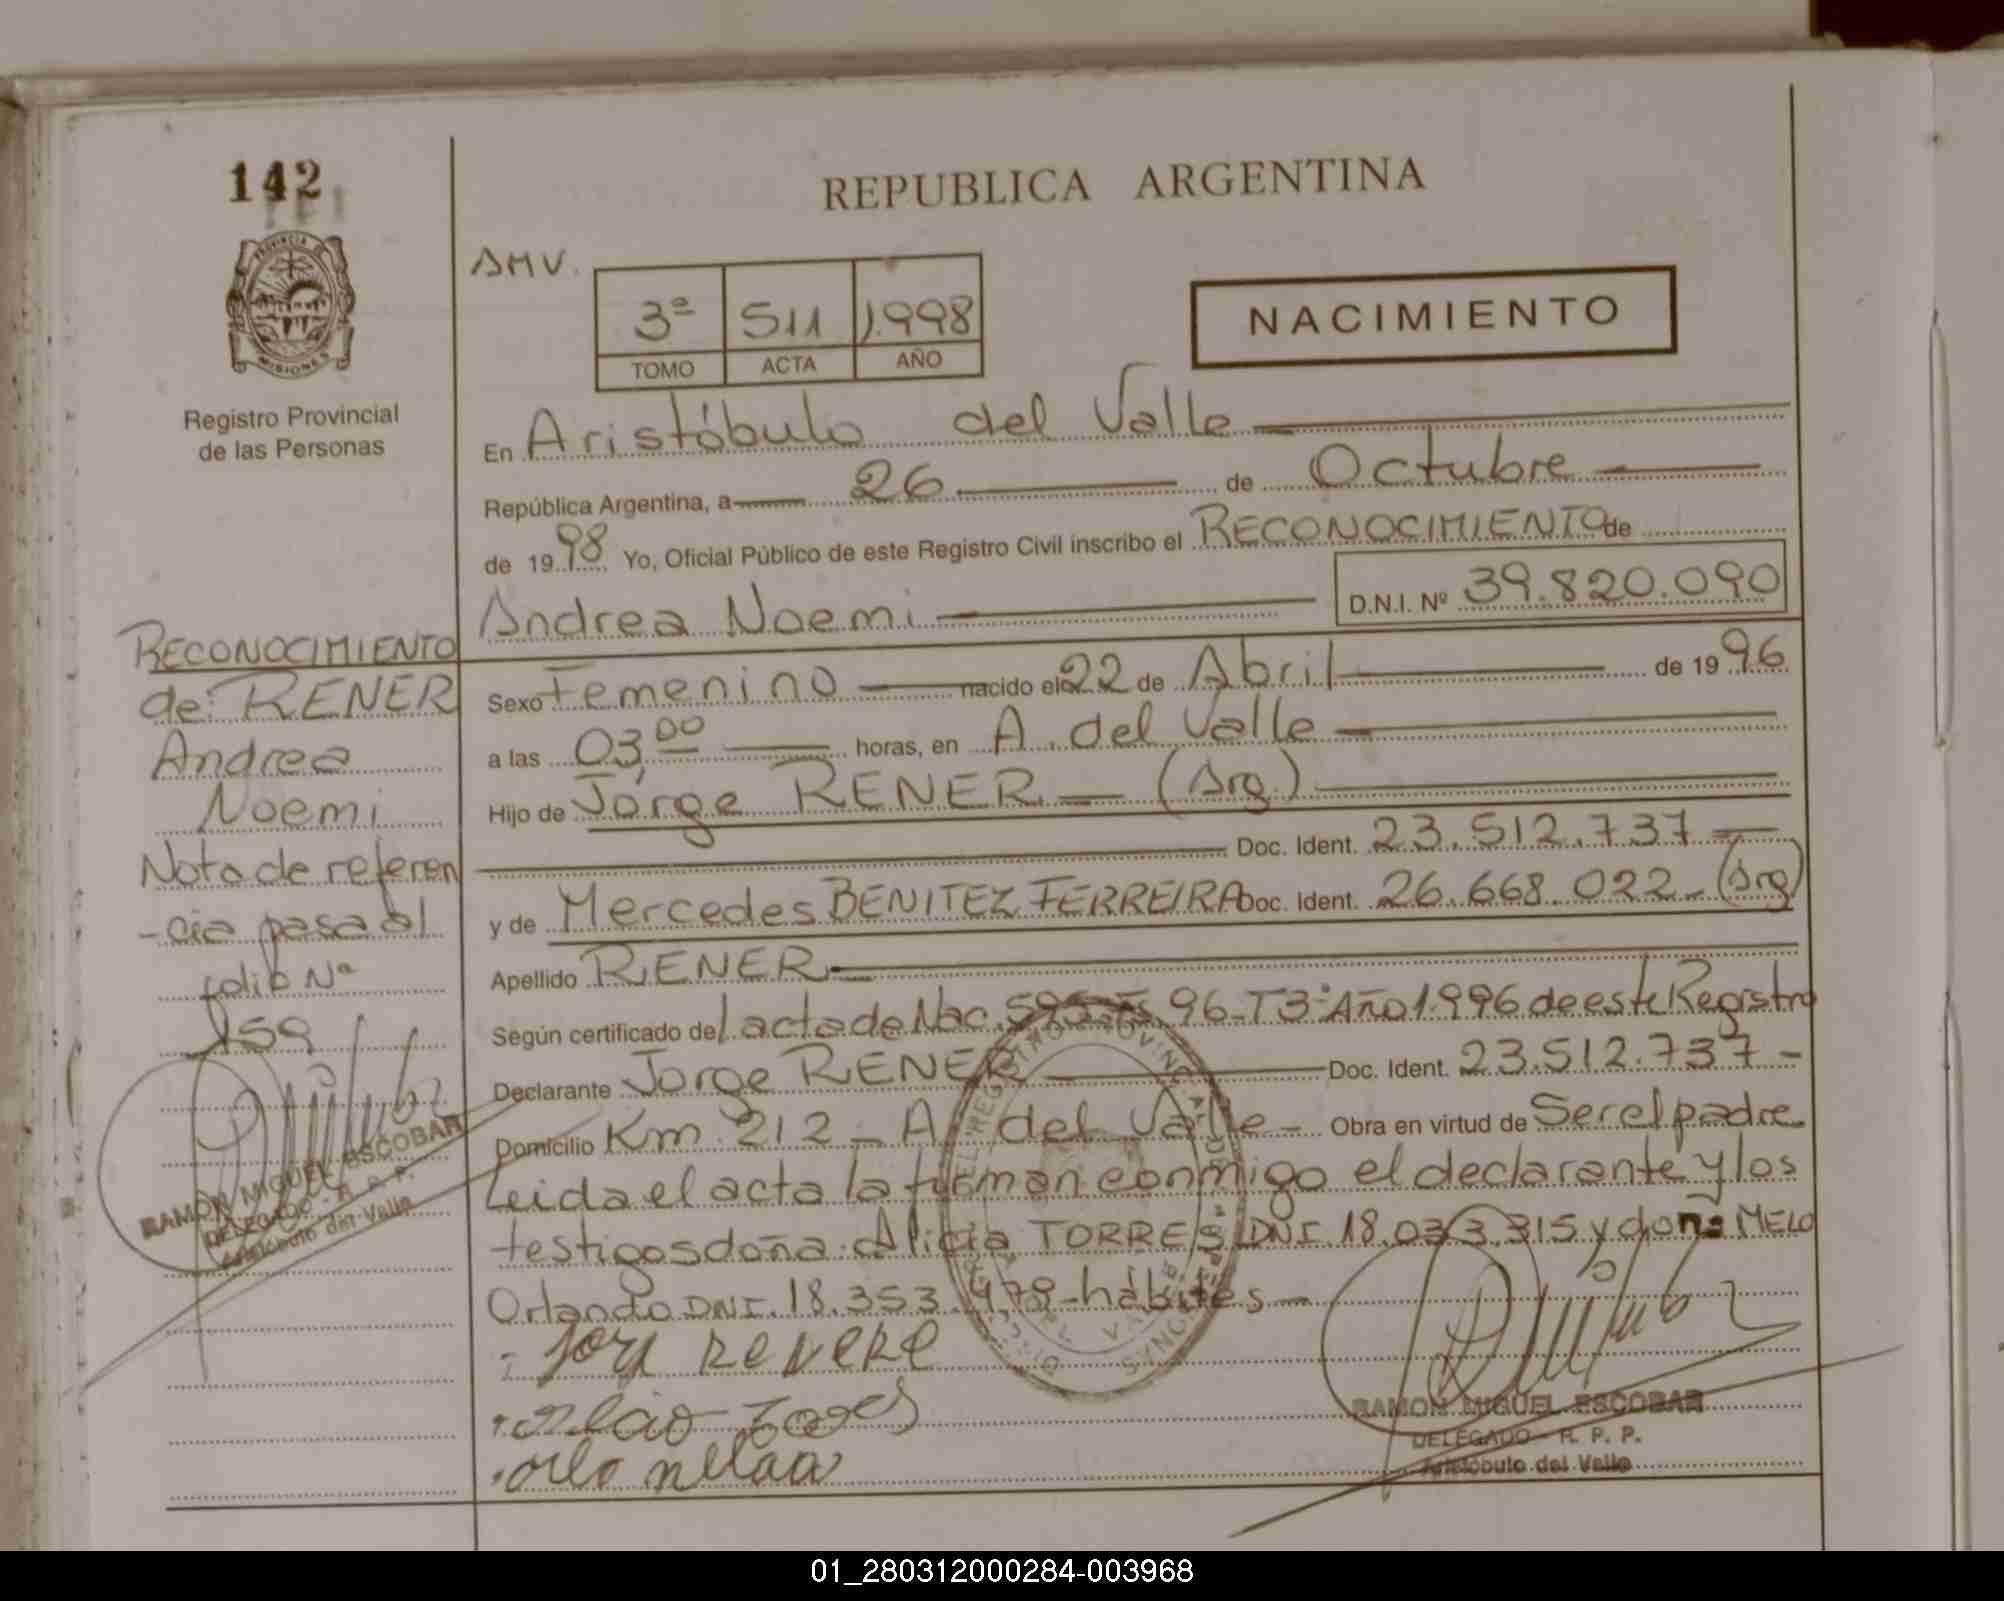 142
REPUBLICA ARGENTINA
PROVINCIA DE
MISIONES
Registro Provincial
de las Personas
AMV.
3ª 511 1.998
TOMO ACTA AÑO
NACIMIENTO
En Aristóbulo del Valle
República Argentina, a 26 de Octubre
de 1998 Yo, Oficial Público de este Registro Civil inscribo el RECONOCIMIENTO de
Andrea Noemi D.N.I. Nº 39.820.090
Sexo Femenino nacido el 22 de Abril de 1996
a las 03,00 horas, en A. del Valle
Hijo de Jorge RENER — (Arg.)
Doc. Ident. 23.512.737
y de Mercedes BENITEZ FERREIRA Doc. Ident. 26.668.022 - (Arg)
Apellido RENER
Según certificado del acta de Nac. 96-T3° Año 1.996 de este Registro
Declarante Jorge RENER Doc. Ident. 23.512.737 -
Domicilio Km 212 - A. del Valle - Obra en virtud de Ser el padre
Leida el acta la firman conmigo el declarante y los
testigos doña: Alicia TORRES DNI 18.033.315 y don: MELO
Orlando DNI. 18.353.478 - hábiles -
RAMON MIGUEL ESCOBAR
DELEGADO - R. P. P.
Aristóbulo del Valle
RECONOCIMIENTO
de: RENER
Andrea
Noemi
Nota de referen
-cia pasa al
folio Nº
159
RAMON MIGUEL ESCOBAR
DELEGADO - R. P. P.
Aristóbulo del Valle
01_280312000284-003968